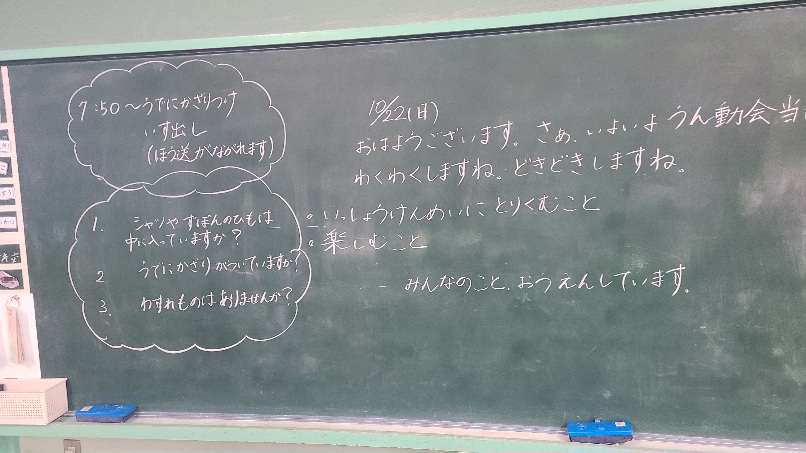 7:50〜うでにかざりつけ
いす出し
(ほう送がながれます)
1. シャツやずぼんのひもは
中に入っていますか?
2 うでにかざりがついていますか?
3. わすれものはありませんか?
10/22(日)
おはようございます。さぁ、いよいようん動会当
わくわくしますね。どきどきしますね。
• いっしょうけんめいにとりくむこと
• 楽しむこと
みんなのこと、おうえんしています。